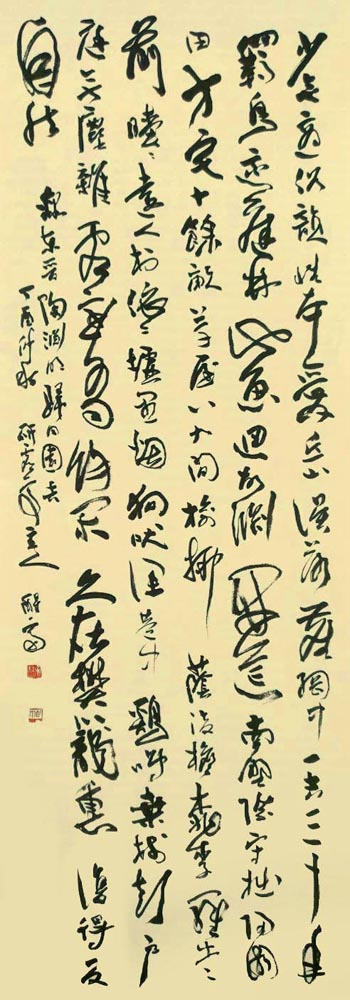 少無適俗韻性本愛丘山誤落塵網中一去三十年
羈鳥戀舊林池魚思故淵開荒南野際守拙歸園
田方宅十餘畝草屋八九間榆柳蔭後檐桃李羅堂
前曖〻遠人村依〻墟里煙狗吠深巷中鷄鳴桑樹顛戶
庭無塵雜虛室有餘閑久在樊籠裏復得返
自然
錄東晉陶淵明歸田園居
丁酉仲秋 主人